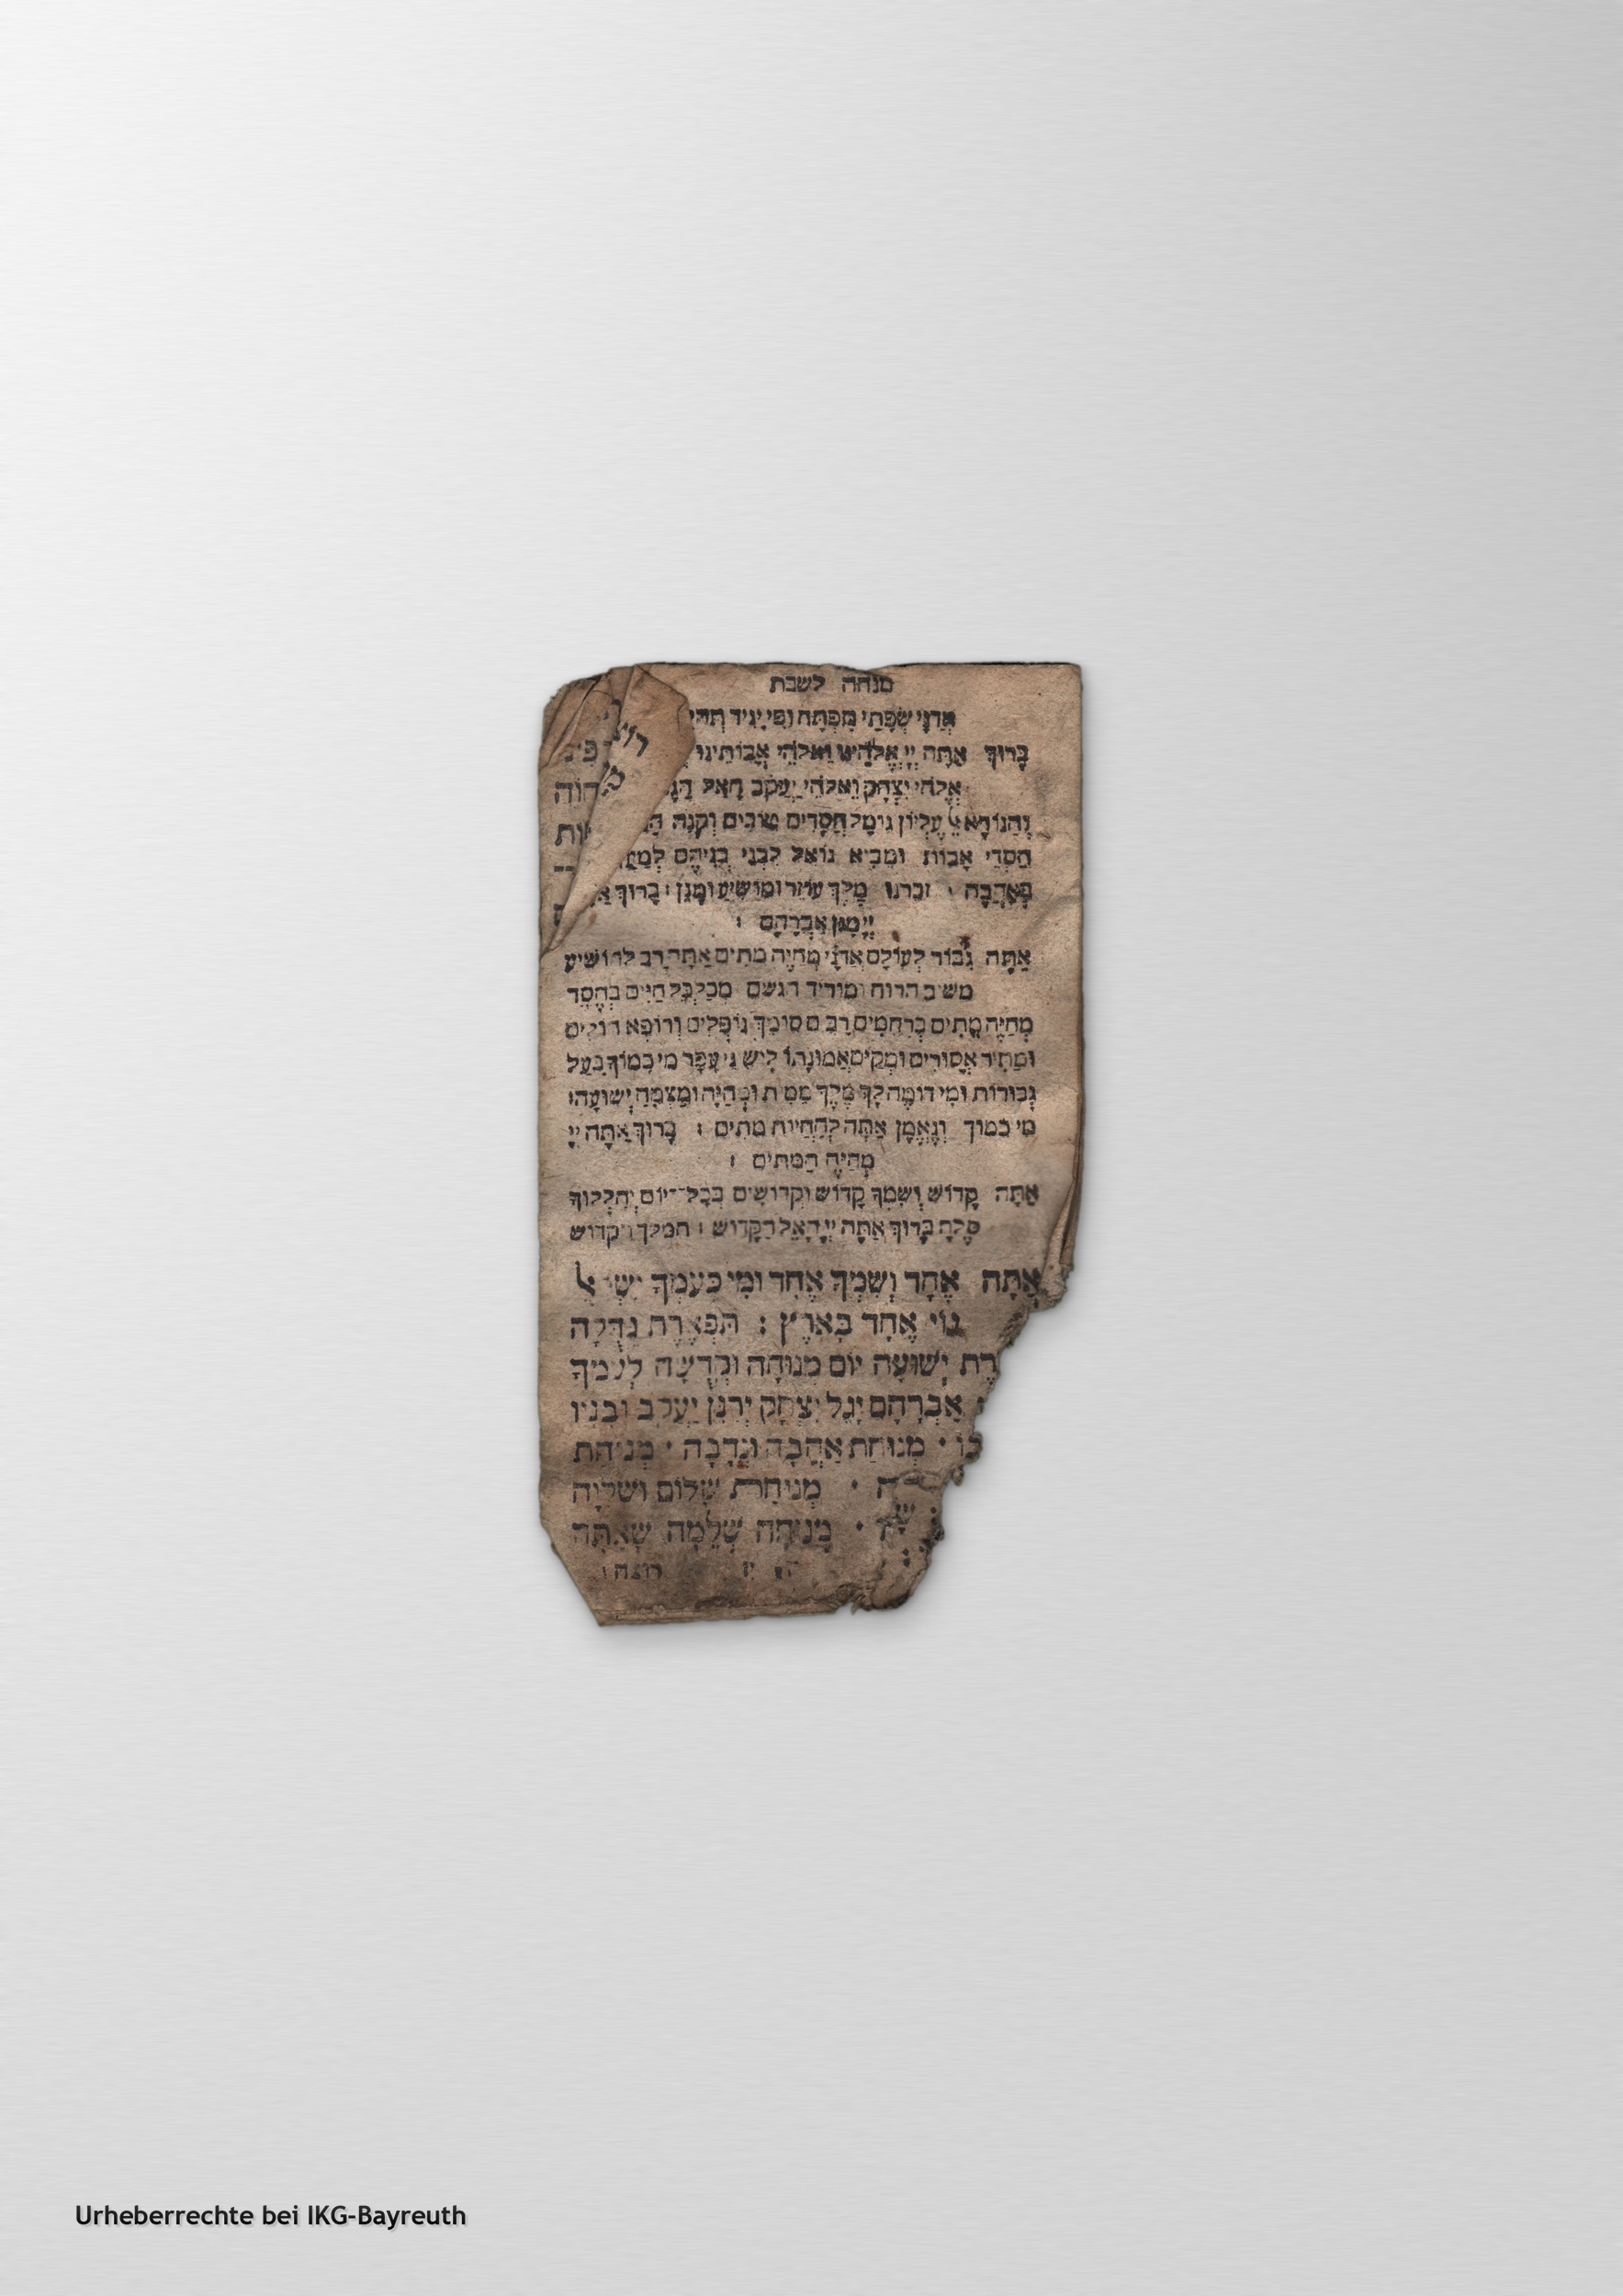 מנחה לשבת
אֲדֹנָי שְׂפָתַי תִּפְתָּח וּפִי יַגִּיד
בָּרוּךְ אַתָּה יְיָ אֱלֹהֵינוּ וֵאלֹהֵי אֲבוֹתֵינוּ
אֱלֹהֵי יִצְחָק וֵאלֹהֵי יַעֲקֹב הָאֵל
וְהַנּוֹרָא אֵל עֶלְיוֹן גּוֹמֵל חֲסָדִים טוֹבִים וְקֹנֵה
חַסְדֵי אָבוֹת וּמֵבִיא גוֹאֵל לִבְנֵי בְנֵיהֶם
בְּאַהֲבָה · זכרנו מֶלֶךְ עוֹזֵר וּמוֹשִׁיעַ וּמָגֵן : בָּרוּךְ
יְיָ מָגֵן אַבְרָהָם :
אַתָּה גִּבּוֹר לְעוֹלָם אֲדֹנָי מְחַיֶּה מֵתִים אַתָּה רַב לְהוֹשִׁיעַ
משיב הרוח ומוריד הגשם מְכַלְכֵּל חַיִּים בְּחֶסֶד
מְחַיֵּה מֵתִים בְּרַחֲמִים רַבִּים סוֹמֵךְ נוֹפְלִים וְרוֹפֵא חוֹלִים
וּמַתִּיר אֲסוּרִים וּמְקַיֵּם אֱמוּנָתוֹ לִישֵׁנֵי עָפָר מִי כָמוֹךָ בַּעַל
גְּבוּרוֹת וּמִי דוֹמֶה לָּךְ מֶלֶךְ מֵמִית וּמְחַיֶּה וּמַצְמִיחַ יְשׁוּעָה :
מי כמוך וְנֶאֱמָן אַתָּה לְהַחֲיוֹת מֵתִים : בָּרוּךְ אַתָּה יְיָ
מְחַיֵּה הַמֵּתִים :
אַתָּה קָדוֹשׁ וְשִׁמְךָ קָדוֹשׁ וּקְדוֹשִׁים בְּכָל־יוֹם יְהַלְלוּךָ
סֶּלָה בָּרוּךְ אַתָּה יְיָ הָאֵל הַקָּדוֹשׁ : המלך הקדוש
אַתָּה אֶחָד וְשִׁמְךָ אֶחָד וּמִי כְּעַמְּךָ
גּוֹי אֶחָד בָּאָרֶץ : תִּפְאֶרֶת גְּדֻלָּה
יְשׁוּעָה יוֹם מְנוּחָה וּקְדֻשָּׁה לְעַמְּךָ
אַבְרָהָם יָגֵל יִצְחָק יְרַנֵּן יַעֲקֹב וּבָנָיו
בוֹ · מְנוּחַת אַהֲבָה וּנְדָבָה · מְנוּחַת
· מְנוּחַת שָׁלוֹם וְשַׁלְוָה
· מְנוּחָה שְׁלֵמָה שָׁאַתָּה
רוצה
Urheberrechte bei IKG-Bayreuth